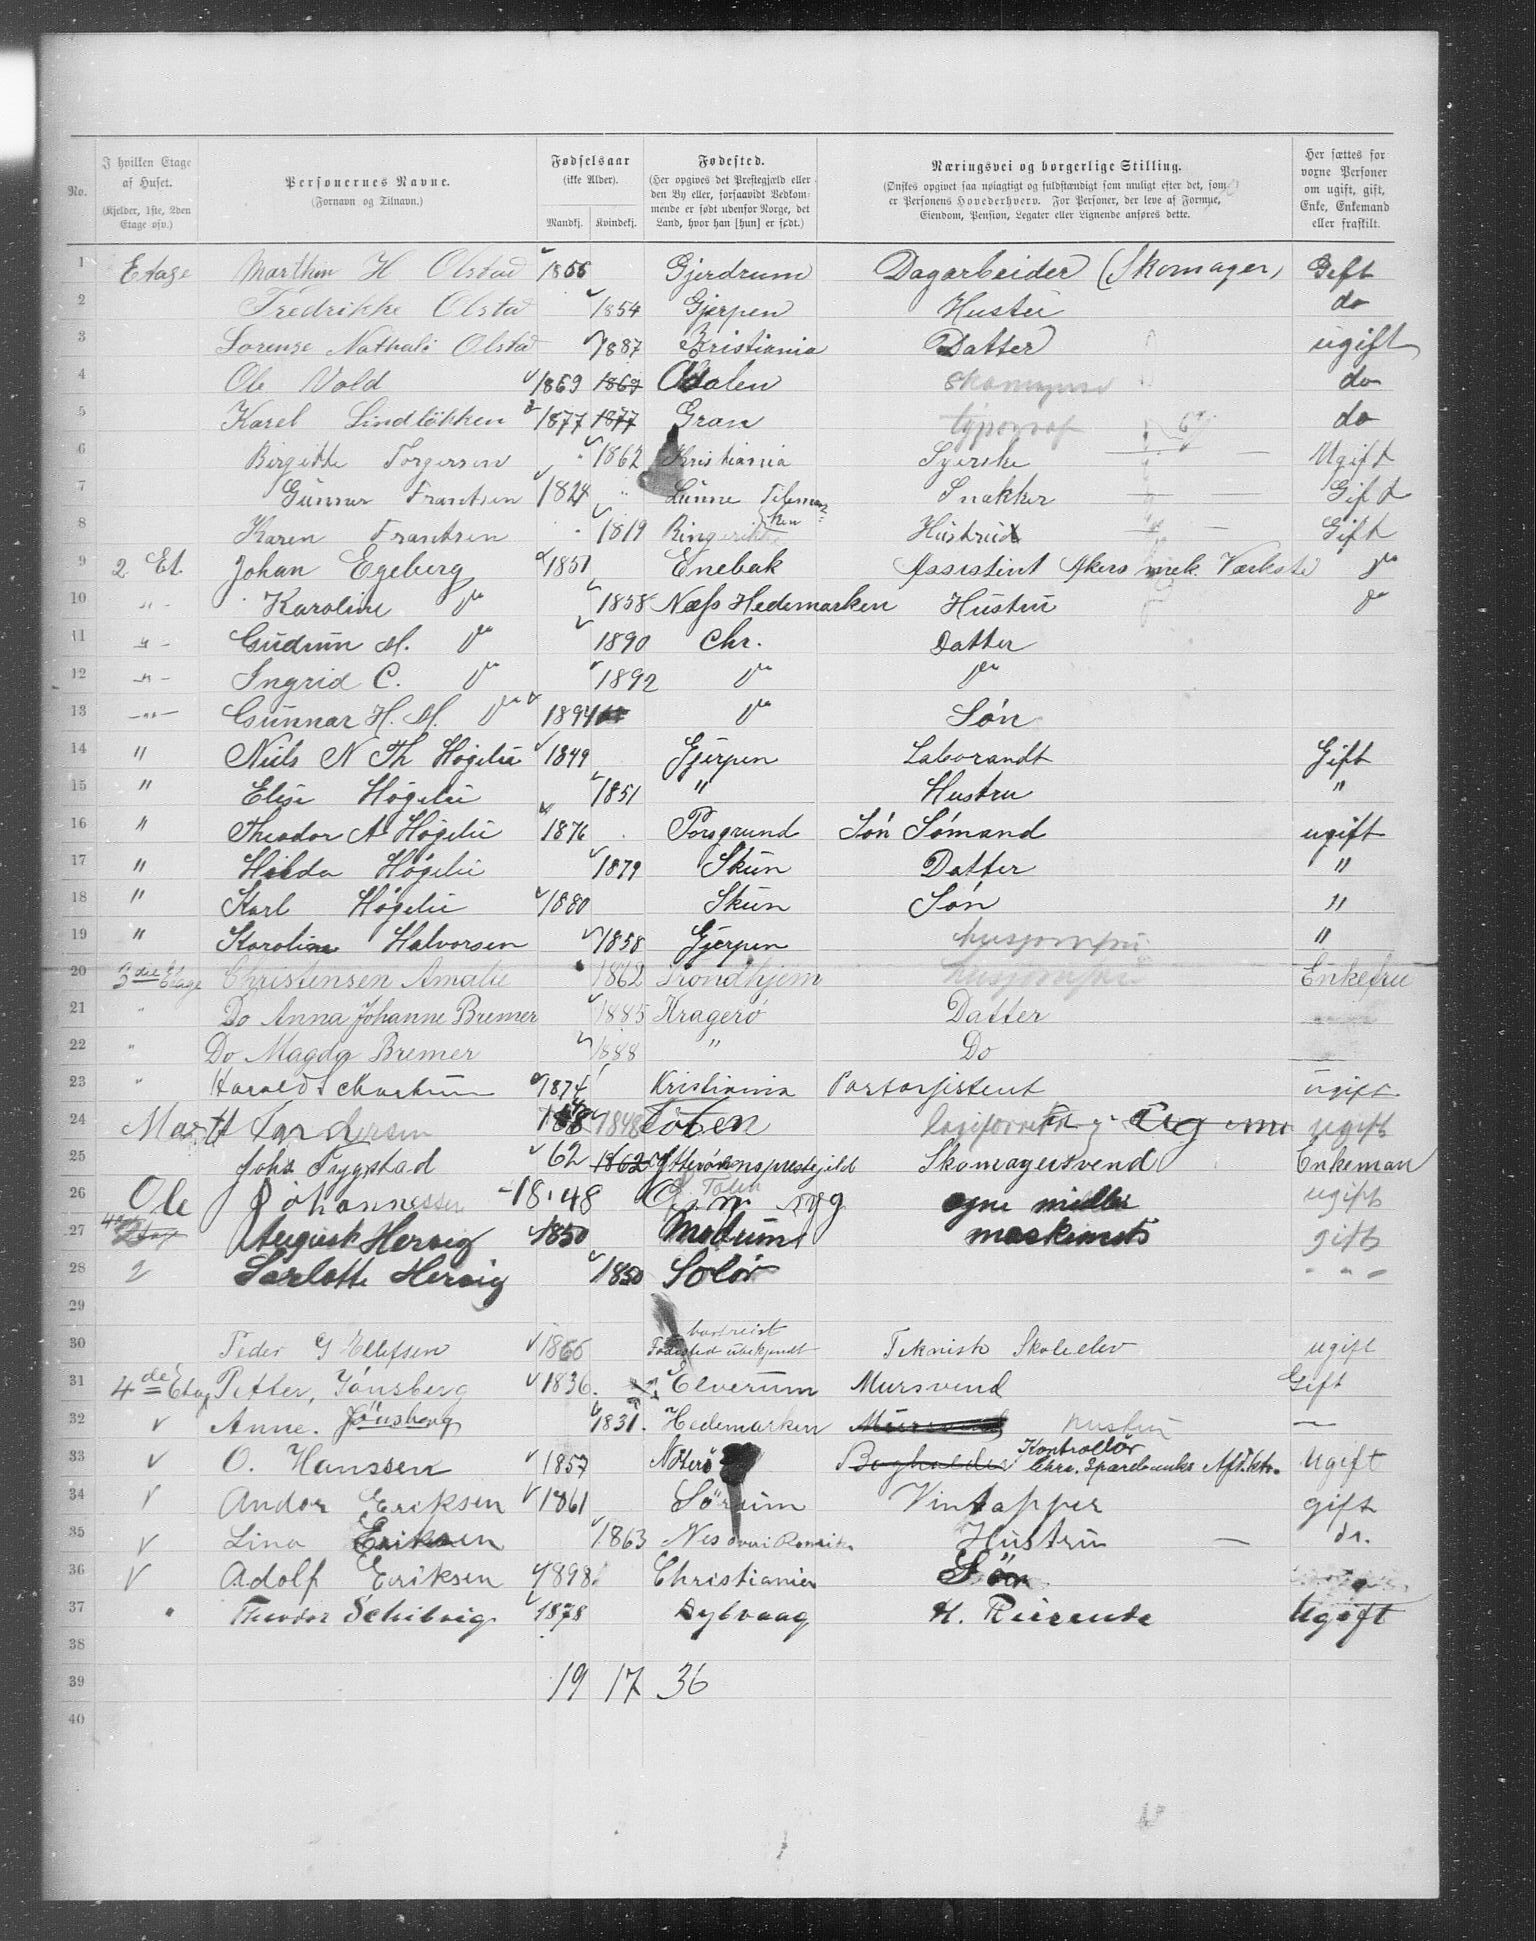 No. | I hvilken Etage af Huset. (Kjelder, 1ste, 2den Etage osv.) | Personernes Navne. (Fornavn og Tilnavn.) | Fødselsaar (ikke Alder). Mandkj. | Kvindekj. | Fødested. (Her opgives det Prestegjæld eller den By eller, forsaavidt Vedkommende er født udenfor Norge, det Land, hvor han [hun] er født.) | Næringsvei og borgerlige Stilling. (Ønskes opgivet saa nøiagtigt og fuldstændigt som muligt efter det, som er Personens Hovederhverv. For Personer, der leve af Formue, Eiendom, Pension, Legater eller Lignende anføres dette. | Her sættes for voxne Personer om ugift, gift, Enke, Enkemand eller fraskilt.
1 Etage Marthin H Olstad Gjerdrum Dagarbeider (Skomager) Gift
2 Fredrikke Olstad 1854 Gjerpen Hustru do
3 Lorense Nathali Olstad 1887 Kristiania Datter ugift
4 Ole Vold 1869 1869 Odalen do
5 Karel Lindløkken 1877 1877 Gran typograf do
6 Birgitte Torgersen 1862 Kristiania Syerske Ugift
7 Gunnar Frantsen 1824 Lunne Tilemarken Snekker Gift
8 Karen Frantsen 1819 Ringerike Hustru Gift
9 2 Et. Johan Egeberg 1851 Enebak Assistent Akers mek. Værksted do
10 " - Karoline do 1858 Næss Hedemarken Hustru do
11 " - Gudrun M. do 1890 Chr. Datter
12 " - Ingrid C. do 1892 do do
13 " - Gunnar H. M. do 1894 do Søn
14 " Niels N Th Høgelie 1849 Gjerpen Laborandt Gift
15 " Elise Høgelie 1851 " Hustru "
16 " Theodor A Høgelie 1876 Porsgrund Søn Sømand ugift
17 " Hilda Høgelie 1879 Skien Datter "
18 " Karl Høgelie 1880 Skien Søn "
19 " Karoline Halvorsen 1858 Gjerpen "
20 3die Etage Christensen Amalie 1862 Trondhjem Enkefru
21 " Do Anna Johanne Bremer 1885 Kragerø Datter
22 " Do Magda Bremer 1888 " Do
23 " Harald 1874 Kristiania Postassistent ugift
24 1848 Toten ugift
25 Johs Tryggstad 62 1862 Skomagersvend Enkeman
26 Ole Johannessen 18.48 Toten egne midler ugift
27 August Hervig 1850 Modum maskinist gift
28 2 Sarlotte Hervig 1850 Solør - " -
29
30 Peder G Ellefsen 1866 bortreist Fødested ubekjendt Teknisk Skoleelev ugift
31 4de Etage Petter, Jønsberg 1836. Elverum Mursvend Gift
32 v Anne. Jønsberg 1831. Hedemarken Mursvend hustru —
33 v O. Hanssen 1857 Nøterø Bogholder Kontrollør Chra. Sparebanks Aft.kto. Ugift
34 v Andor Eriksen 1861 Sørum Vintapper gift
35 v Lina Eriksen 1863 Nes øvri Romrike Hustru — do.
36 v Adolf Eriksen 1898 Christiania Søn
37 " Theodor Schilvig 1878 Dybvaag H. Reisende Ugift
38
39 19 17 36
40